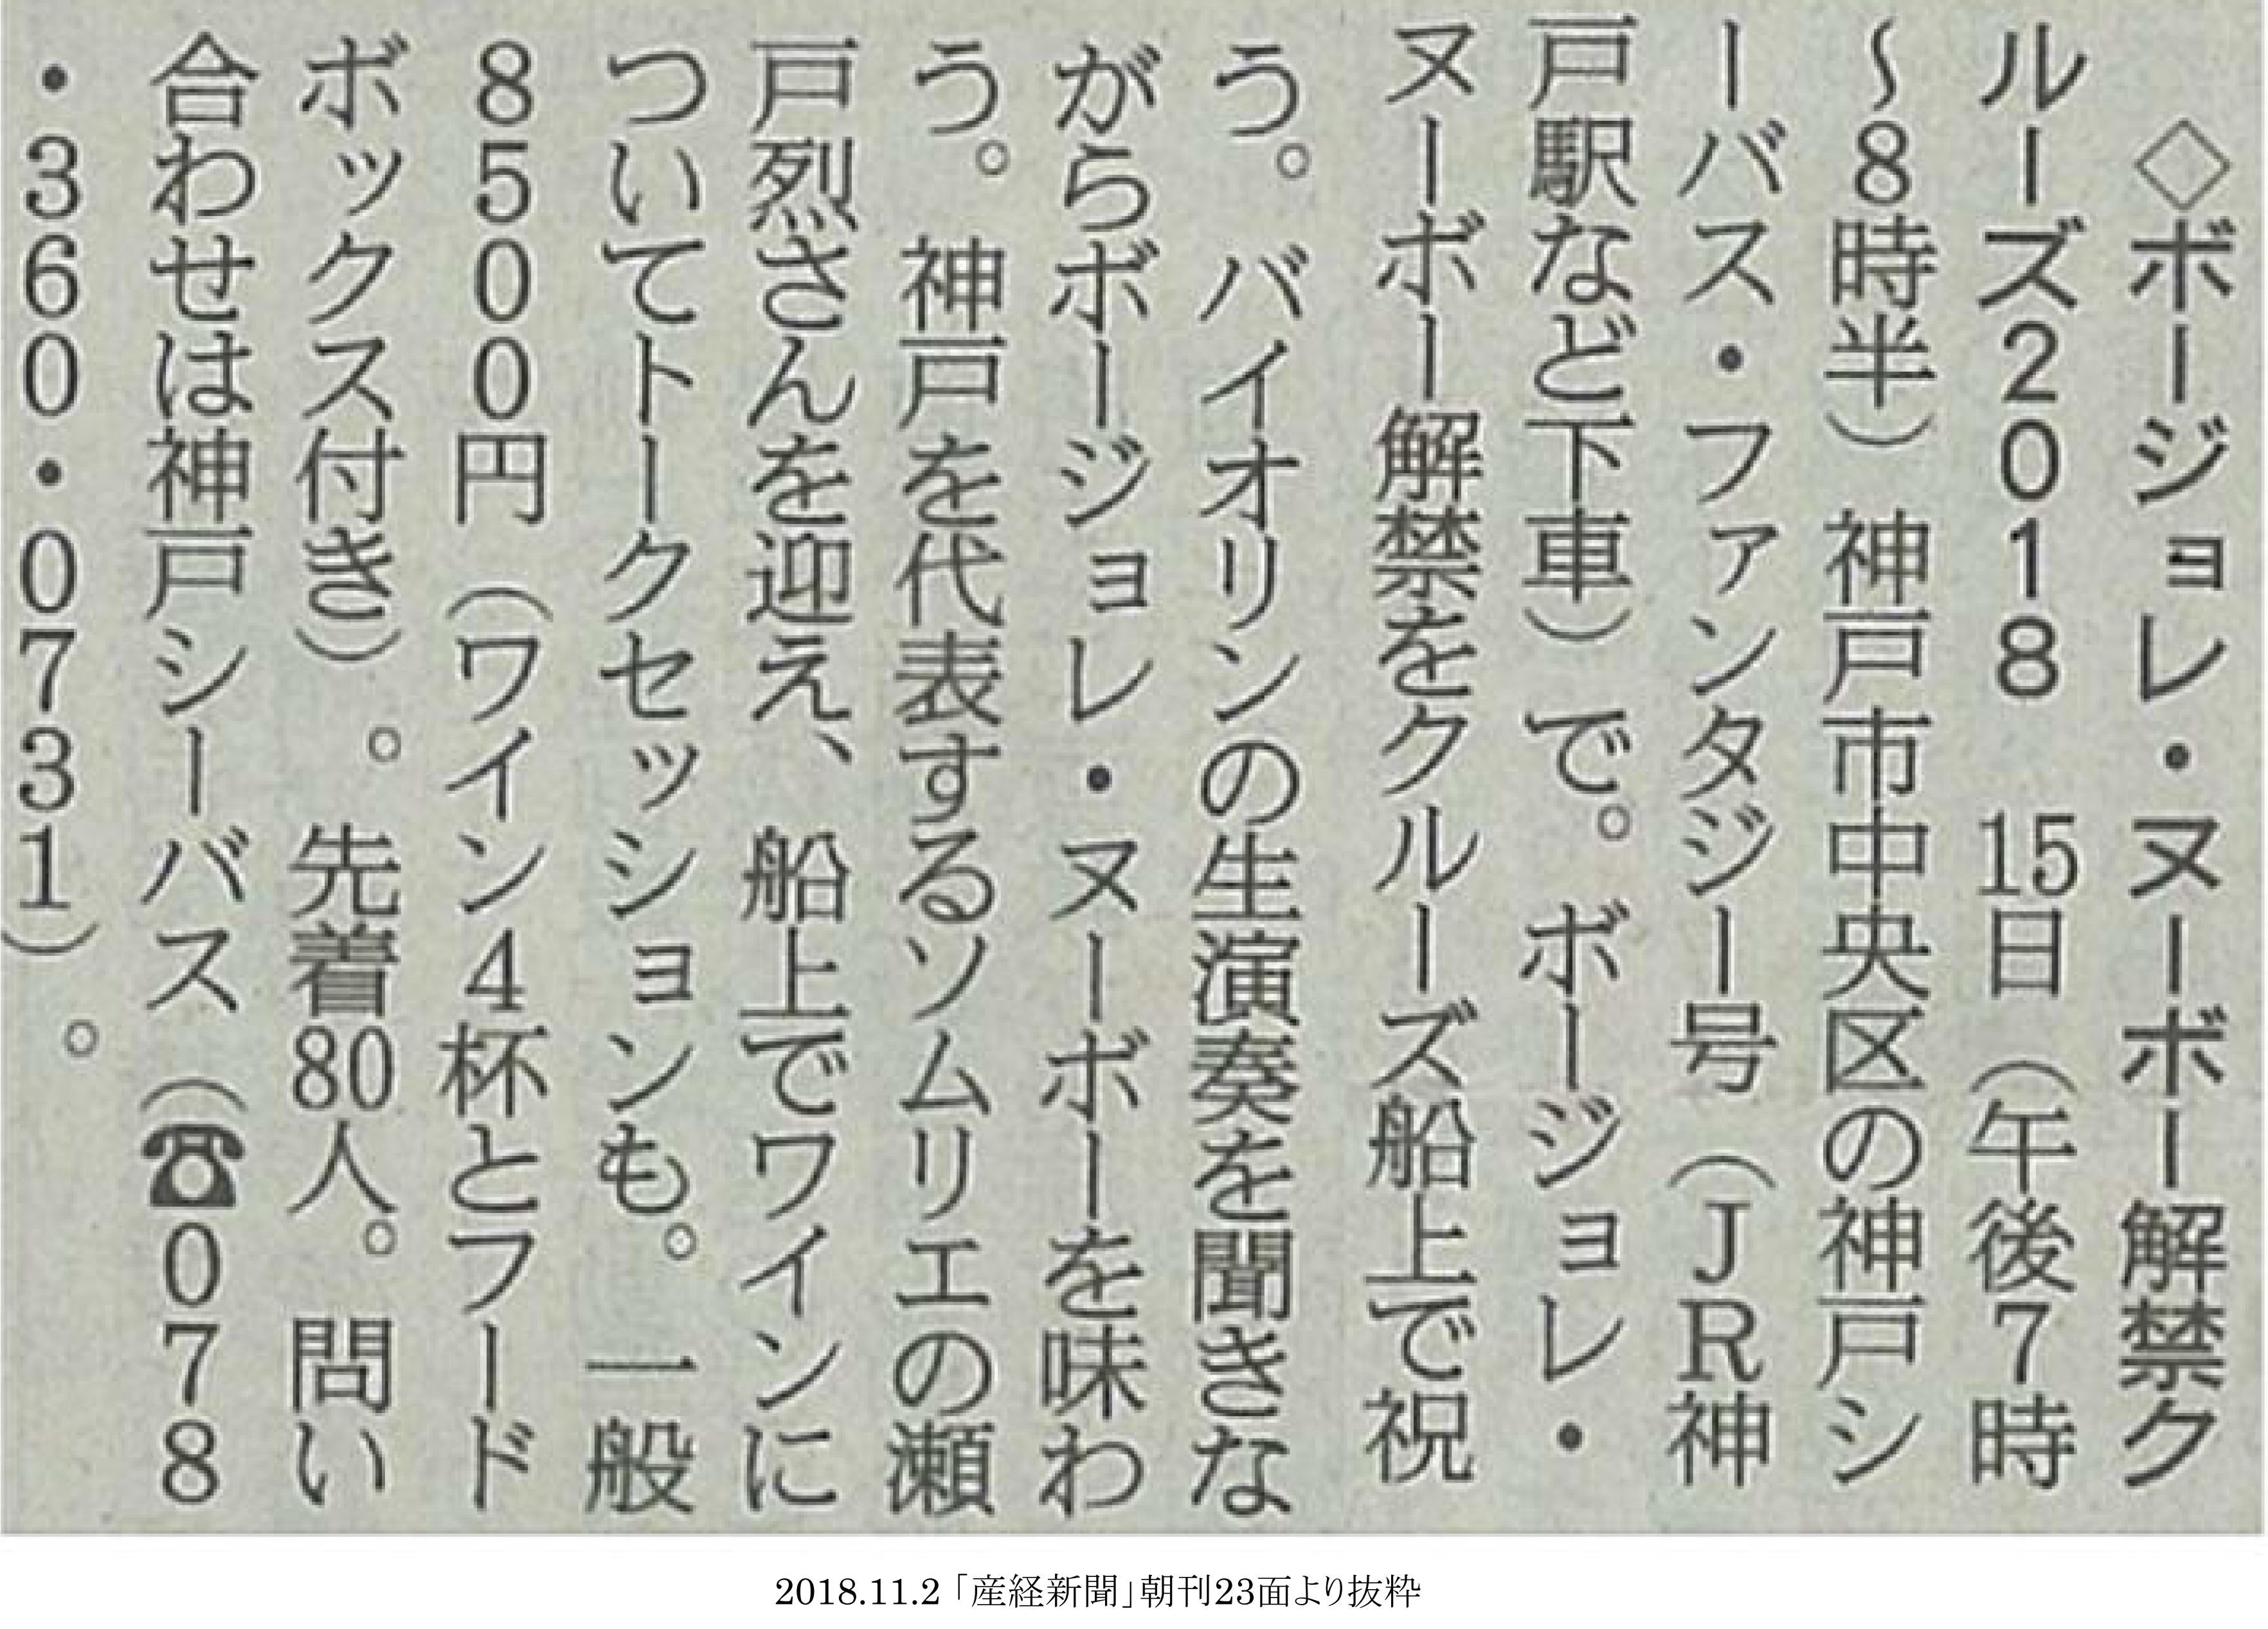 ◇ボージョレ・ヌーボー解禁ク
ルーズ2018　15日（午後7時
～8時半）神戸市中央区の神戸シ
ーバス・ファンタジー号（ＪＲ神
戸駅など下車）で。ボージョレ・
ヌーボー解禁をクルーズ船上で祝
う。バイオリンの生演奏を聞きな
がらボージョレ・ヌーボーを味わ
う。神戸を代表するソムリエの瀬
戸烈さんを迎え、船上でワインに
ついてトークセッションも。一般
8500円（ワイン4杯とフード
ボックス付き）。先着80人。問い
合わせは神戸シーバス（☎078
・360・0731）。
2018.11.2「産経新聞」朝刊23面より抜粋